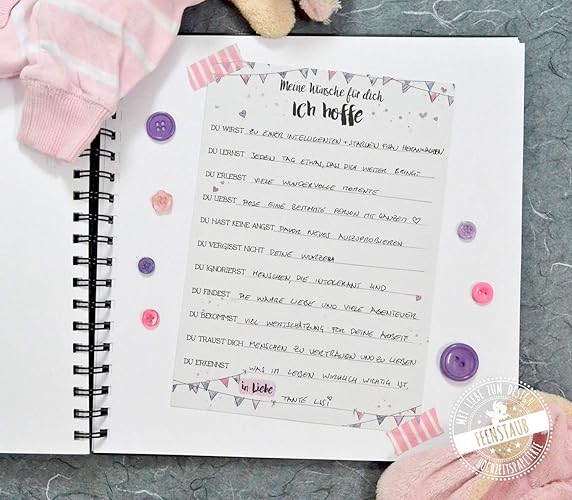 Meine Wünsche für dich
Ich hoffe
DU WIRST ZU EINER INTELLIGENTEN + STARKEN FRAU HERANWACHSEN
DU LERNST JEDEN TAG ETWAS, DAS DICH WEITER BRINGT
DU ERLEBST VIELE WUNDERVOLLE MOMENTE
DU LIEBST DIESE EINE BESTIMMTE PERSON MIT GANZEM ♡
DU HAST KEINE ANGST DAVOR NEUES AUSZUPROBIEREN
DU VERGISST NICHT DEINE WURZELN
DU IGNORIERST MENSCHEN, DIE INTOLERANT SIND
DU FINDEST DIE WAHRE LIEBE UND VIELE ABENTEUER
DU BEKOMMST VIEL WERTSCHÄTZUNG FÜR DEINE ARBEIT
DU TRAUST DICH MENSCHEN ZU VERTRAUEN UND ZU LIEBEN
DU ERKENNST WAS IM LEBEN WIRKLICH WICHTIG IST.
in Liebe
TANTE LISI
MIT LIEBE ZUM DETAIL
FEENSTAUB
HOCHZEITSPAPETERIE